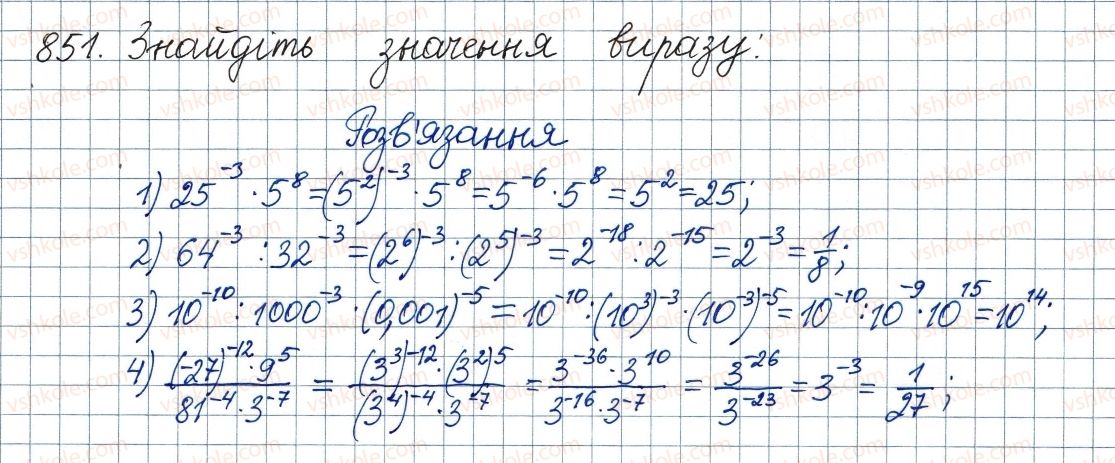 851. Знайдіть значення виразу:
Розв'язання
1) 25⁻³ · 5⁸ = (5²)⁻³ · 5⁸ = 5⁻⁶ · 5⁸ = 5² = 25;
2) 64⁻³ : 32⁻³ = (2⁶)⁻³ : (2⁵)⁻³ = 2⁻¹⁸ : 2⁻¹⁵ = 2⁻³ = 1/8;
3) 10⁻¹⁰ : 1000⁻³ · (0,001)⁻⁵ = 10⁻¹⁰ : (10³)⁻³ · (10⁻³)⁻⁵ = 10⁻¹⁰ : 10⁻⁹ · 10¹⁵ = 10¹⁴;
4) ((-27)⁻¹² · 9⁵)/(81⁻⁴ · 3⁻⁷) = ((3³)⁻¹² · (3²)⁵)/((3⁴)⁻⁴ · 3⁻⁷) = (3⁻³⁶ · 3¹⁰)/(3⁻¹⁶ · 3⁻⁷) = 3⁻²⁶/3⁻²³ = 3⁻³ = 1/27;
vshkole.com